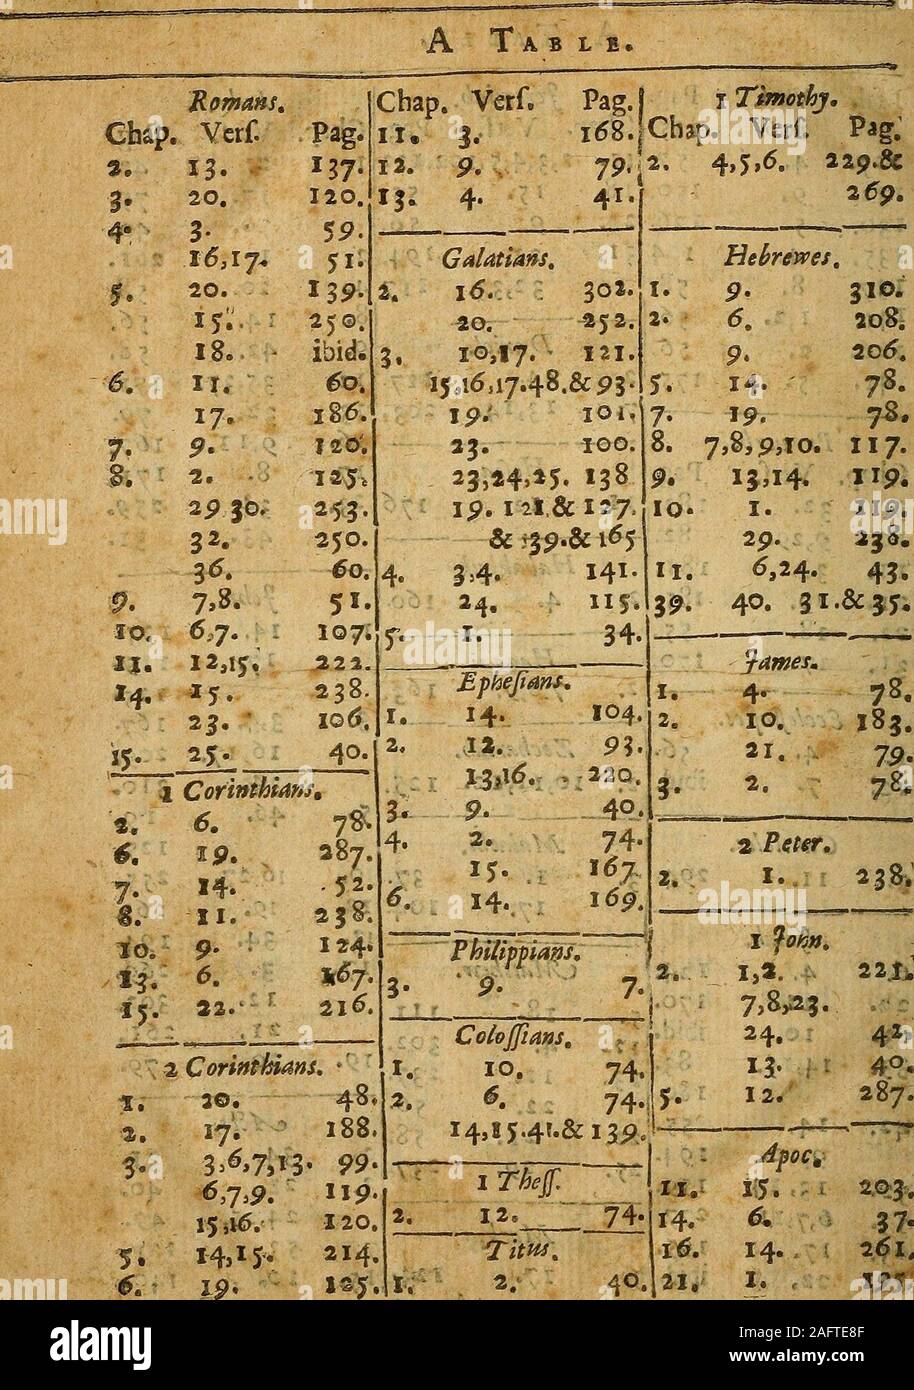 A TABLE.
Romans.
Chap. Verſ. Pag.
2. 13. 137.
3. 20. 120.
4. 3. 59.
16,17. 51.
5. 20. 139.
15. 250.
18. ibid.
6. 11. 60.
17. 186.
7. 9. 120.
8. 2. 125.
29 30. 253.
32. 250.
36. 60.
9. 7,8. 51.
10. 6,7. 107.
11. 12,15. 222.
14. 15. 238.
23. 106.
15. 25. 40.
1 Corinthians.
2. 6. 78.
6. 19. 287.
7. 14. 52.
8. 11. 238.
10. 9. 124.
13. 6. 167.
15. 22. 216.
2 Corinthians.
1. 20. 48.
2. 17. 188.
3. 3,6,7,13. 99.
6,7,9. 119.
15,16. 120.
5. 14,15. 214.
6. 19. 125.
Chap. Verſ. Pag.
11. 3. 168.
12. 9. 79.
13. 4. 41.
Galatians.
2. 16. 302.
20. 252.
3. 10,17. 121.
15,16,17.48.&93.
19. 101.
23. 100.
23,24,25. 138
19. 121.& 127.
& 139.& 165
4. 3.4. 141.
24. 115.
5. 1. 34.
Epheſians.
1. 14. 104.
2. 12. 93.
13,16. 220.
3. 9. 40.
4. 2. 74.
15. 167.
6. 14. 169.
Philippians.
3. 9. 7.
Coloſſians.
1. 10. 74.
2. 6. 74.
14,15.41.& 139.
1 Theſſ.
2. 12. 74.
Titus.
1. 2. 40.
1 Timothy.
Chap. Verſ. Pag.
2. 4,5,6. 229.&
269.
Hebrewes.
1. 9. 310.
2. 6. 208.
9. 206.
5. 14. 78.
7. 19. 78.
8. 7,8,9,10. 117.
9. 13,14. 119.
10. 1. 119.
29. 238.
11. 6,24. 43.
39. 40. 31.& 35.
James.
1. 4. 78.
2. 10. 183.
21. 79.
3. 2. 78.
2 Peter.
2. 1. 238.
1 John.
2. 1,2. 221.
7,8,23.
24. 42.
13. 40.
5. 12. 287.
Apoc.
11. 15. 203.
14. 6. 37.
16. 14. 261.
21. 1.
alamy
Image ID: 2AFTE8F
www.alamy.com